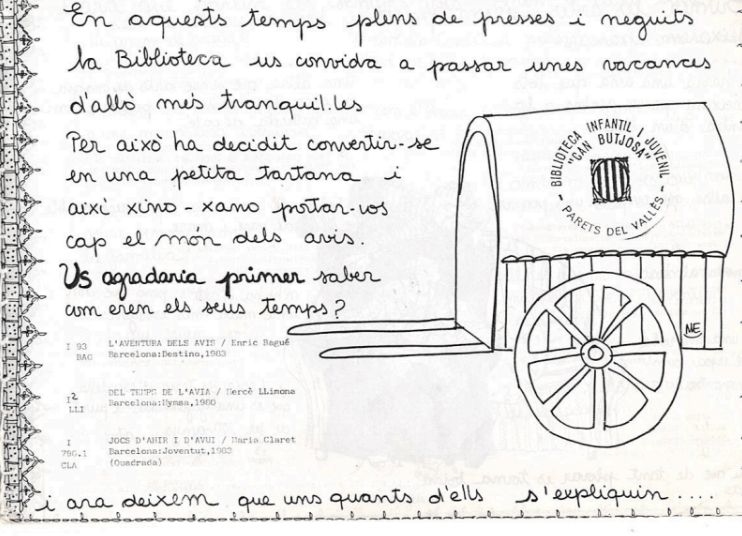 En aquests temps plens de presses i neguits
la Biblioteca us convida a passar unes vacances
d'allò més tranquil.les
Per això ha decidit convertir-se
en una petita tartana i
així xino-xano portar-vos
cap el món dels avis.
Us agradaria primer saber
com eren els seus temps?
BIBLIOTECA INFANTIL I JUVENIL
"CAN BUTJOSA"
- PARETS DEL VALLÈS -
NE
I 93 L'AVENTURA DELS AVIS / Enric Bagué
BAG Barcelona:Destino,1983
I2 DEL TEMPS DE L'AVIA / Mercè Llimona
LLI Barcelona:Hymsa,1980
I JOCS D'AHIR I D'AVUI / Maria Claret
796.1 Barcelona:Joventut,1983
CLA (Quadrada)
i ara deixem que uns quants d'ells s'expliquin ....